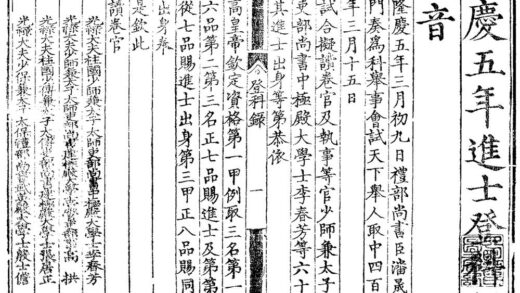 慶五年進士登
音
隆慶五年三月初九日禮部尚書臣潘晟
門奏為科舉事會試天下舉人取中四百
年三月十五日
試合擬讀卷官及執事等官少師兼太子
吏部尚書中極殿大學士李春芳等六十
其進士出身等第恭依
登科錄 一
高皇帝欽定資格第一甲例取三名第一
六品第二第三名正七品賜進士及第第
從七品賜進士出身第三甲正八品賜同
出身奉
是欽此
讀卷官
光祿大夫柱國少師兼太子太師吏部尚書中極殿大學士李春芳
光祿大夫柱國少傅兼太子太傅吏部尚書建極殿大學士張居正
光祿大夫柱國少師兼太子太師吏部尚書 高拱
光祿大夫少保兼太子太保禮部尚書武英殿大學士殷士儋